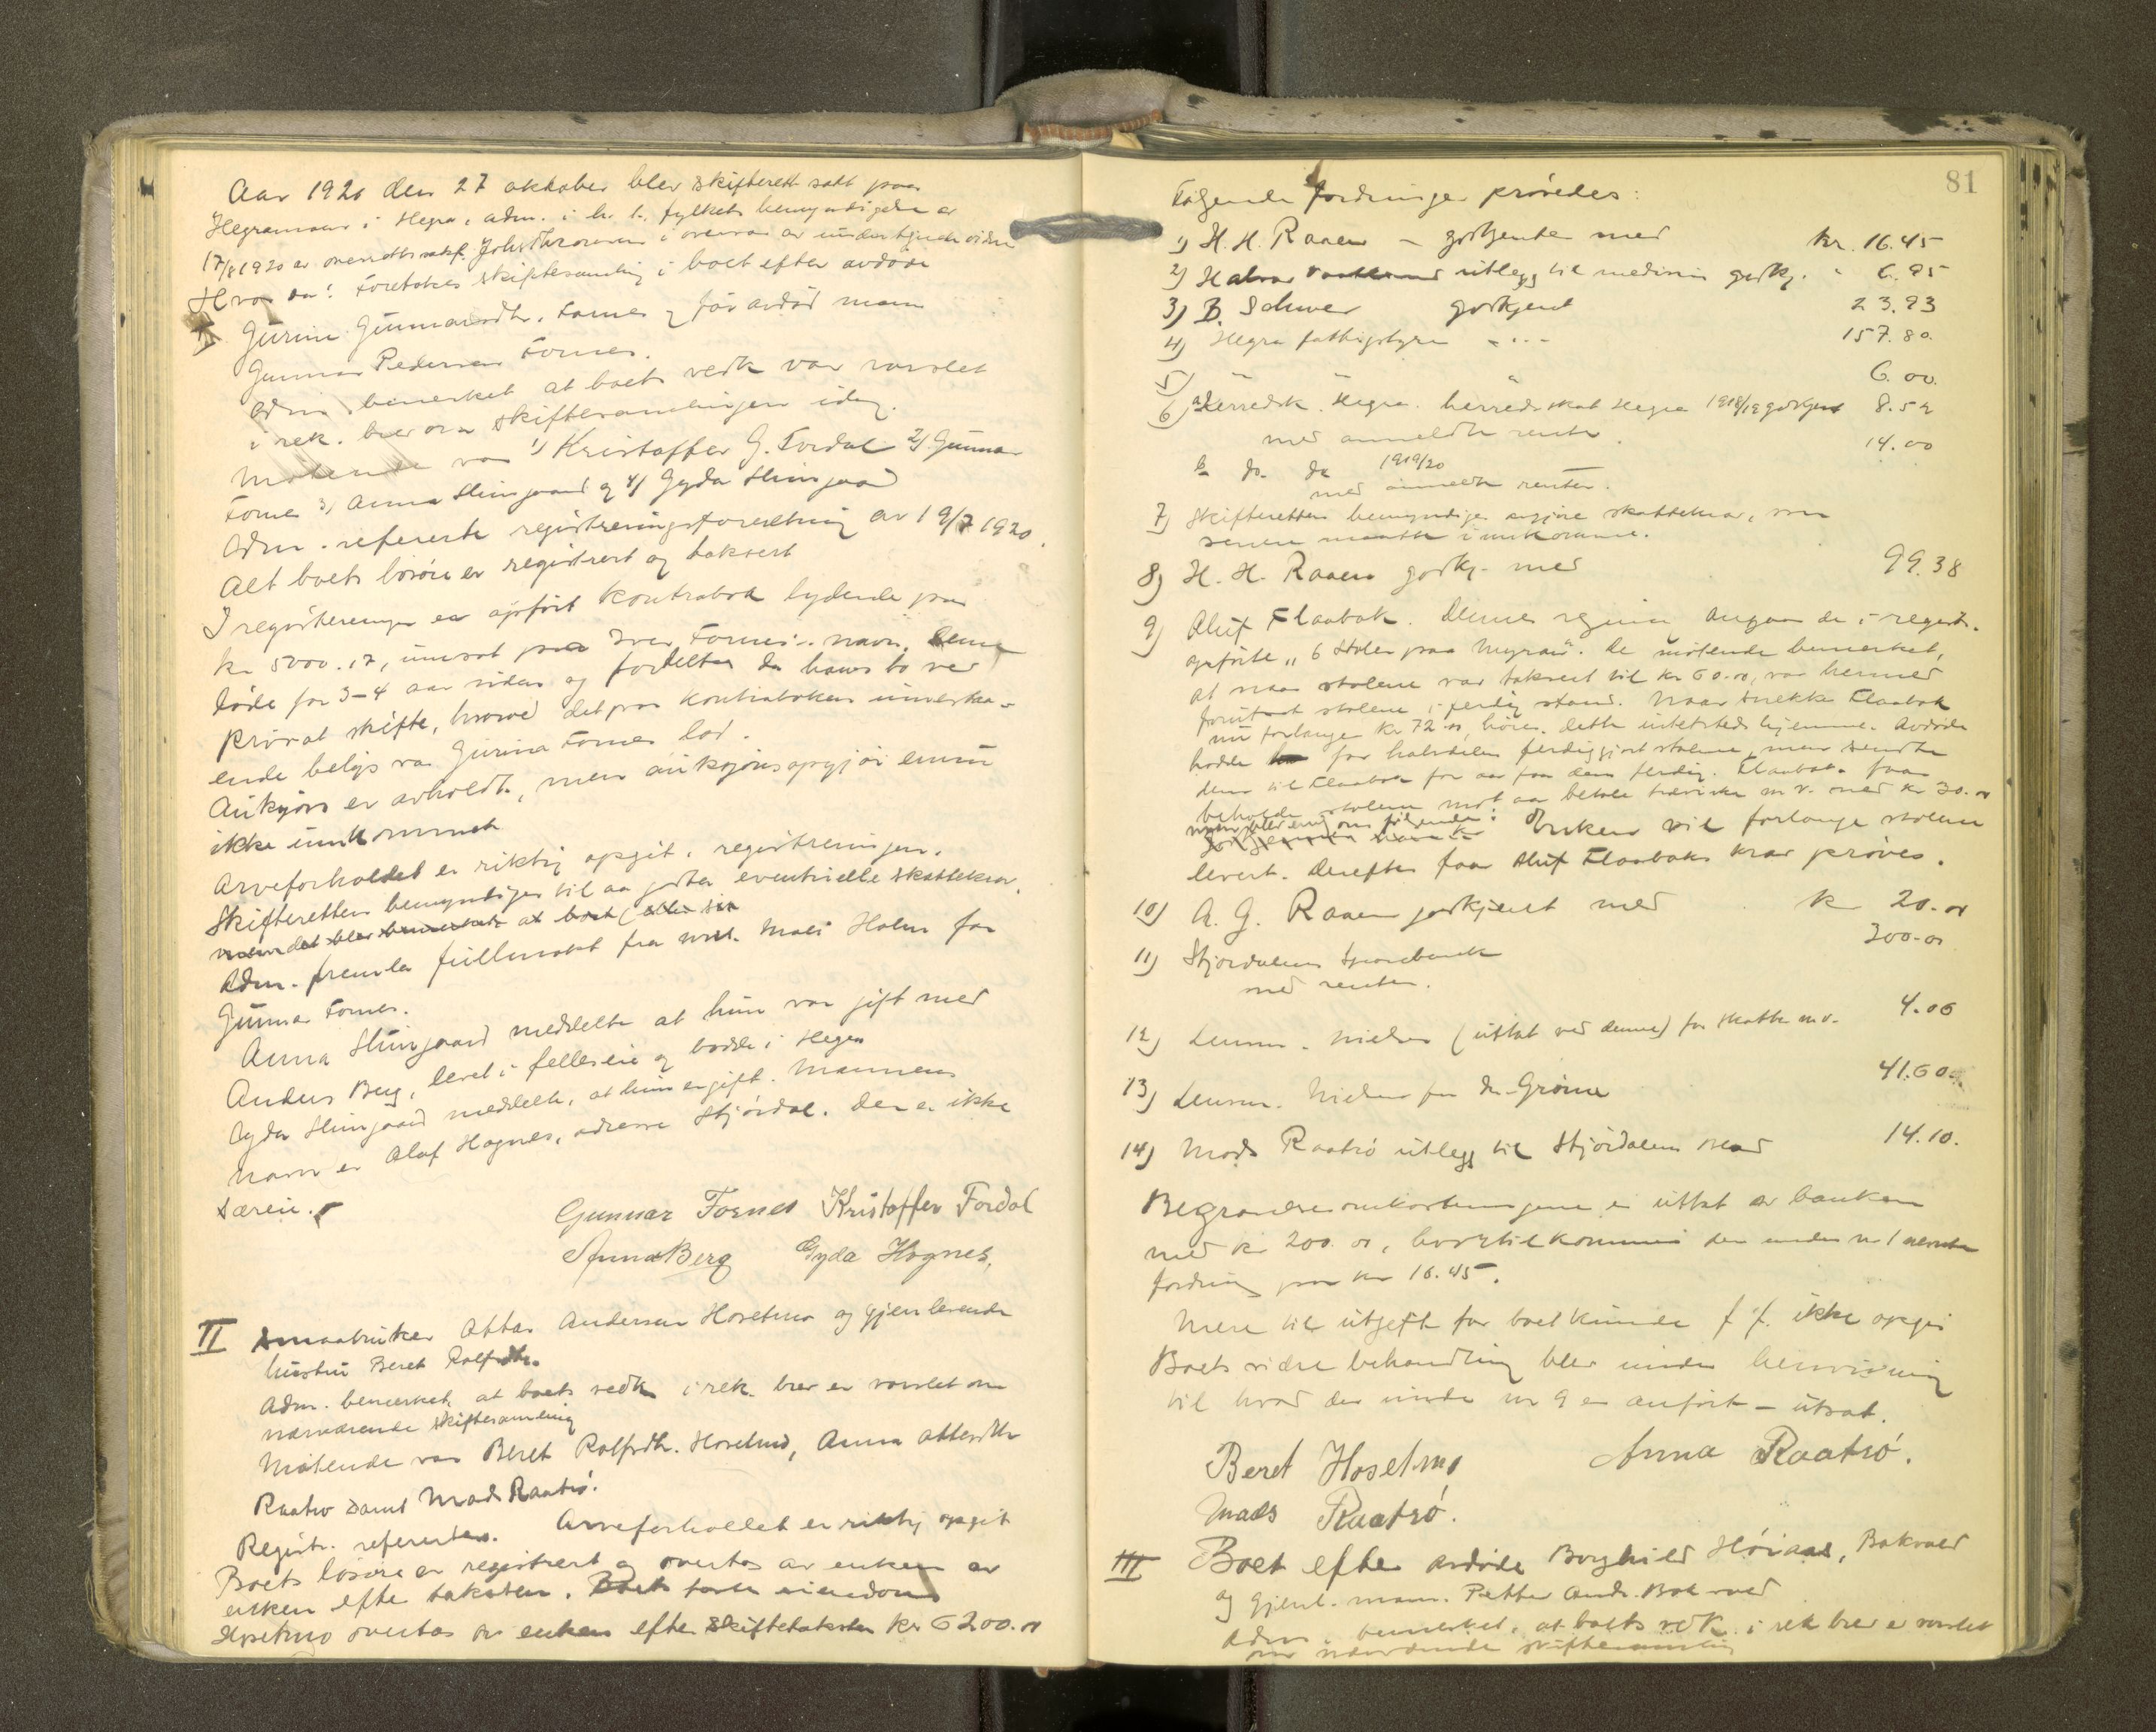 Aar 1920 den 27 oktober blev skifterett satt paa
Hegramoen i Hegra, adm. i h. t. fylkets bemyndigelse av
17/8 1920 av overrettssakf. Johs Thronsen i overvær av undertegnede vidner
Hvor da: Foretokes skiftesamling i boet efter avdøde
I. Gurine Gunnarsdtr. Fornes og før avdød mann
Gunnar Pedersen Fornes.
Adm. bemerket at boets vedk var varslet
i rek. brev om skiftesamlingen idag.
Møtende var 1) Kristoffer G. Fordal 2) Gunnar
Fornes 3) Anna Slungaard og 4) Gyda Slungaard
Adm. refererte registreringsforretning av 19/7 1920.
Alt boets løsøre er registrert og taksert
I registreringen er opført kontrabok lydende paa
kr 5000.17, innsat paa Iver Fornes's navn. Denne
døde for 3-4 aar siden og fordeltes da hans bo ved
privat skifte, hvorved det paa kontraboken innestaa-
ende beløp var Gurina Fornes lod.
Auksjon er avholdt, men auksjonsopgjør ennu
ikke innkommet
Arveforholdet er riktig opgit i registreringen.
Skifteretten bemyndiges til aa godta eventuelle skattekrav.
men det blev bemerket at boet (eller sin
Adm. fremla fullmakt fra Mali Holm for
Gunnar Fornes.
Anna Slungaard meddelte at hun var gift med
Anders Berg, levet i felleseie og bodde i Hegra
Gyda Slungaard meddelte, at hun er gift. Mannens
navn er Olaf Hognes, adresse Stjørdal. Der er ikke
særeie.
Gunnar Fornes Kristoffer Fordal
Anna Berg Gyda Hognes.
II Smaabruker Ottar Andersen Hoselmo og gjenlevende
hustru Beret Rolfsdtr.
Adm. bemerket, at boets vedk i rek. brev er varslet om
nærværende skiftesamling
Møtende var Beret Rolfsdtr. Hoselmo, Anna Ottersdtr
Raatrø samt Mads Raatrø.
Registr. refereres. Arveforholdet er riktig opgit
Boets løsøre er registrert og overtas av enken av
enken efter taksten. Boets faste eiendom
Hoselmo overtas av enken efter skiftetaksten kr 6200.00
81
Følgende fordringer prøvedes:
1) H. H. Raaen – godkjentes med kr. 16.45
2) Halvar utlegg til medisin godkj. " 6.95
3) B. Schive godkjent 23.93
4) Hegra fattigstyre – " – 157.80.
5) " " " 6.00.
6) a. Herredsk. Hegra. herredsskat Hegra 1918/19 godkjent 8.52
med anmeldte renter.
b do. do 1919/20 14.00
med anmeldte renter.
7) Skifteretten bemyndiges avgjøre skattekrav, som
senere maatte innkomme.
8) H. H. Raaen godkj. med 99.38
9) Oluf Flaabak. Dennes regning angaar de i registr.
opførte "6 stoler paa Myran". De møtende bemerket,
at naar stolene var taksert til kr 60.00, var hermed
forutsat stolene i ferdig stand. Naar snekker Flaabak
nu forlanger kr 72.00, hører dette intetsteds hjemme. Avdøde
hadde for halvdelen ferdiggjort stolene, men sendte
dem til Flaabak for aa faa dem ferdig. Flaabak faar
beholde stolene mot aa betale trævirke m.v. med kr 30.00
men blev enig om følgende: Enken vil forlange stolene
levert. Derefter faar Oluf Flaabaks krav prøves.
10) A. G. Raaen godkjent med kr 20.00
11) Stjørdalens Sparebank 300.00
med renter.
12) Lensm. Nielsen (uttat ved denne) for skatte m.v. 4.06
13) Lensm. Nielsen for dr. Grønn 41.60.
14) Mads Raatrø utlegg til Stjørdalens blad 14.10.
Begravelsesomkostningene er uttat av banken
med kr 200.00, hvortil kommer den under nr 1 nevnte
fordring paa kr 16.45.
Mere til utgift for boet kunde f. t. ikke opgis
Boets videre behandling blev under henvisning
til hvad der under nr 9 er anført – utsat.
Beret Hoselmo Anna Raatrø.
Mads Raatrø.
III Boet efter avdøde Borghild Høiaas, Bakved
og gjenl. mann. Petter Andr. Bakved
Adm. bemerket, at boets vedk. i rek brev er varslet
om nærværende skiftesamling